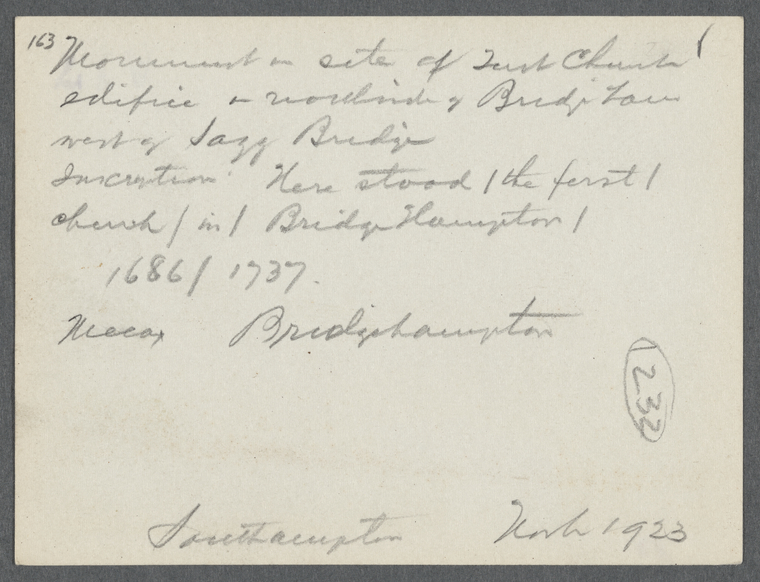 163 Monument on site of First Church
edifice on north side of Bridge Lane
west of Sagg Bridge
Inscription: Here stood / the first /
church / in / BridgeHampton /
1686 / 1737.
Mecox Bridgehampton
1232
Southampton 1923